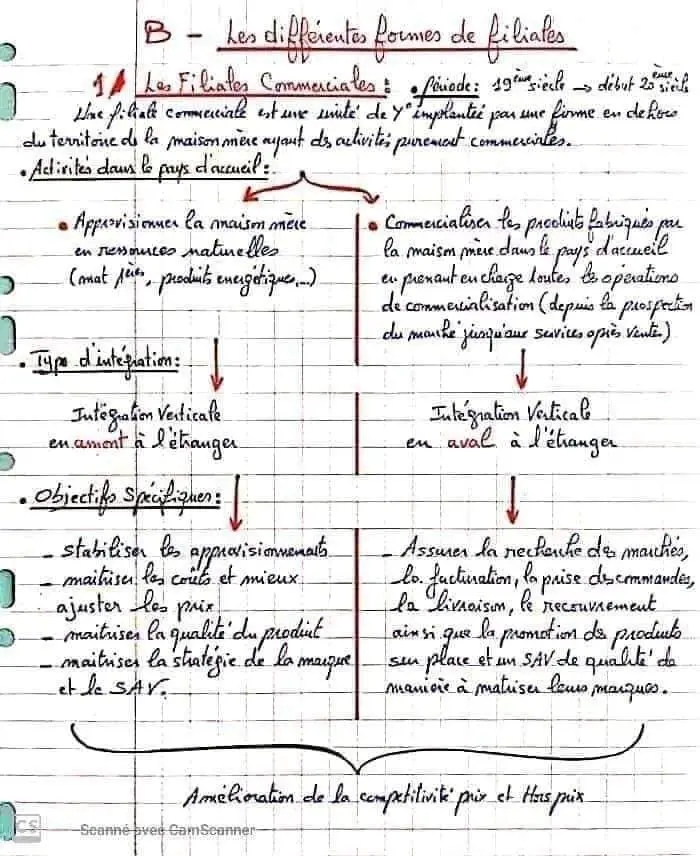 B - Les différentes formes de filiales
1/ Les Filiales Commerciales : • Période : 19ème siècle → début 20ème siècle
Une filiale commerciale est une unité de Y° implantée par une firme en dehors
du territoire de la maison mère ayant des activités purement commerciales.
• Activités dans le pays d'accueil :
• Approvisionner la maison mère
en ressources naturelles
(mat 1ères, produits énergétiques,...)
• Commercialiser les produits fabriqués par
la maison mère dans le pays d'accueil
en prenant en charge toutes les opérations
de commercialisation (depuis la prospection
du marché jusqu'aux services après vente)
• Type d'intégration :
Intégration Verticale
en amont à l'étranger
Intégration Verticale
en aval à l'étranger
• Objectifs Spécifiques :
- stabiliser les approvisionnements
- maitriser les coûts et mieux
ajuster les prix
- maitriser la qualité du produit
- maitriser la stratégie de la marque
et le SAV.
- Assurer la recherche des marchés,
la facturation, la prise des commandes,
la livraison, le recouvrement
ainsi que la promotion des produits
sur place et un SAV de qualité de
manière à matriser leurs marques.
Amélioration de la compétitivité prix et Hors prix
CS
Scanné avec CamScanner